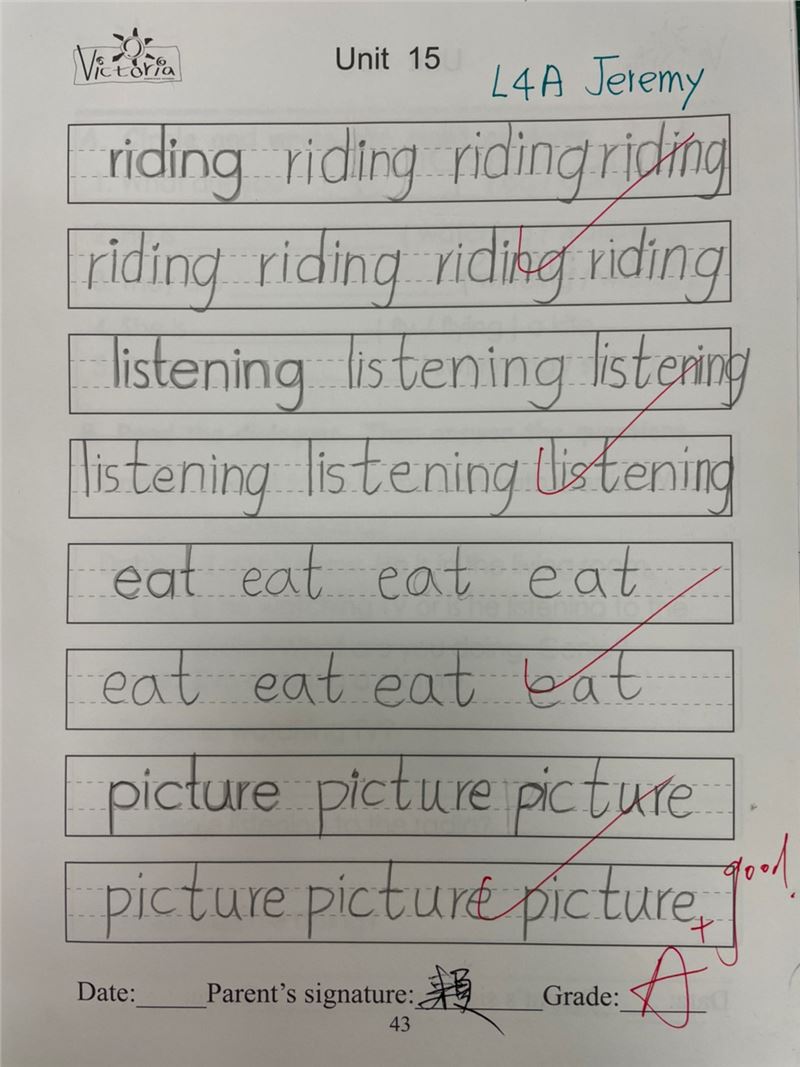 Victoria
Unit 15
L4A Jeremy
riding riding riding riding
riding riding riding riding
listening listening listening
listening listening listening
eat eat eat eat
eat eat eat eat
picture picture picture
picture picture picture
good.
Date:_____Parent's signature:賴_____Grade:A+
43